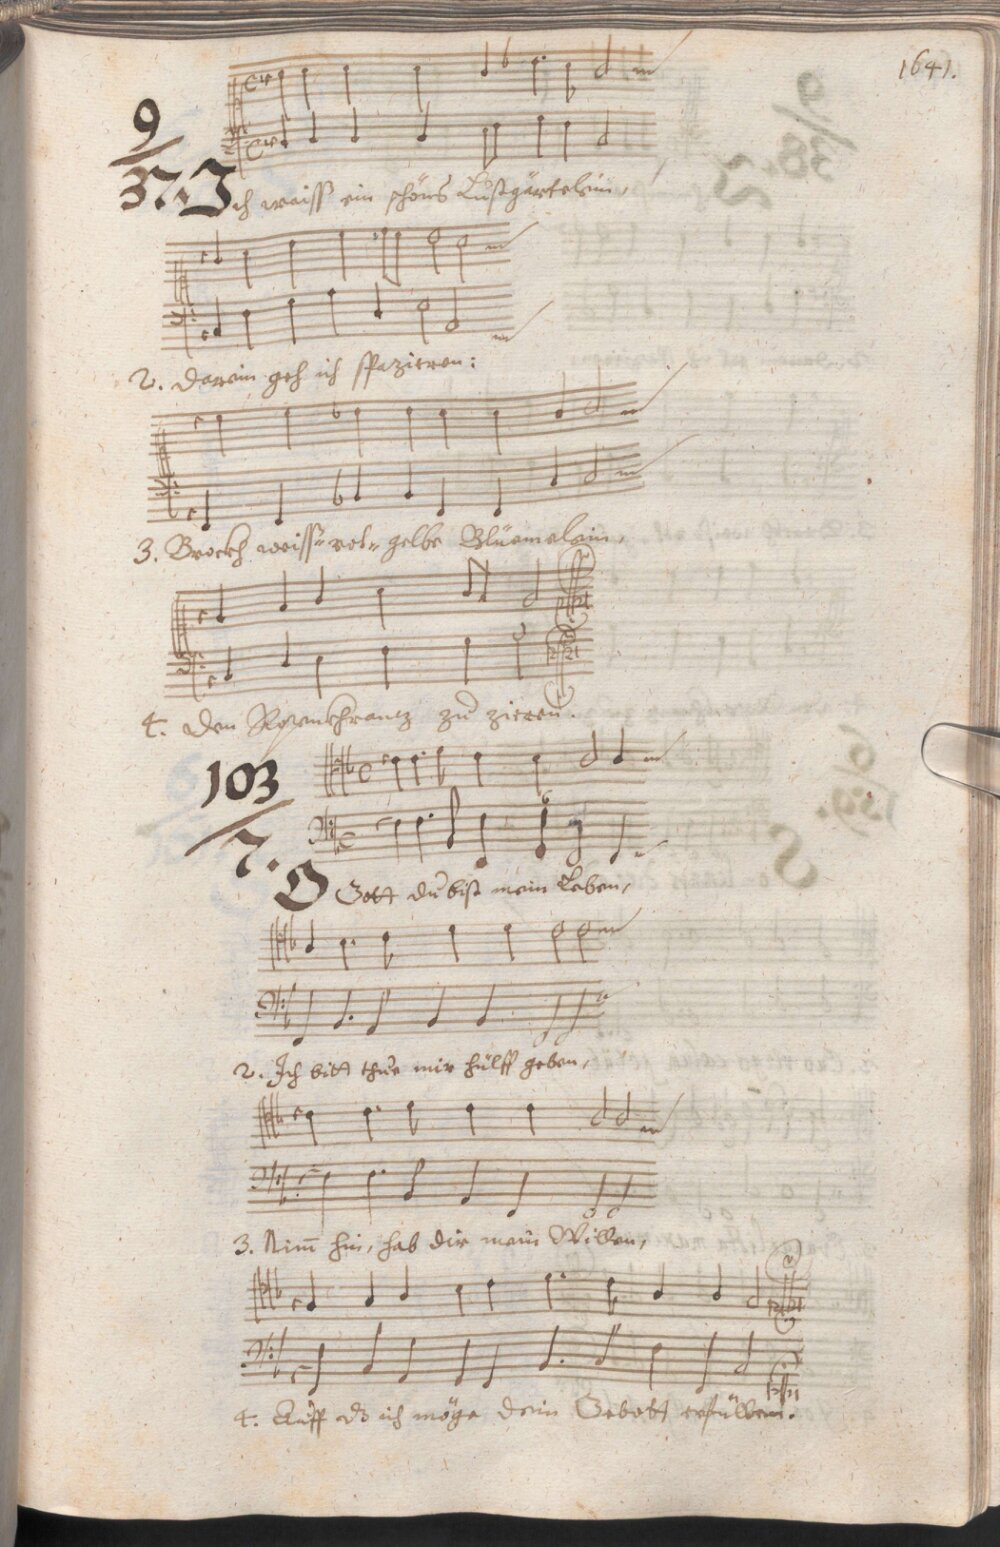 1641.
9
37. Ich waiss ein schöns Lustgärtelein,
2. Darein geh ich spazieren:
3. Brockh weiss- rot- gelbe Blüemelein,
4. Den Rosenkhrantz zů zieren.
103
7. O Gott dů bist mein Leben,
2. Ich bitt thůe mir hülff geben,
3. Nim̄ hin, hab dir mein Willen,
4. Aůff ds ich möge dein Gebott erfüllen.